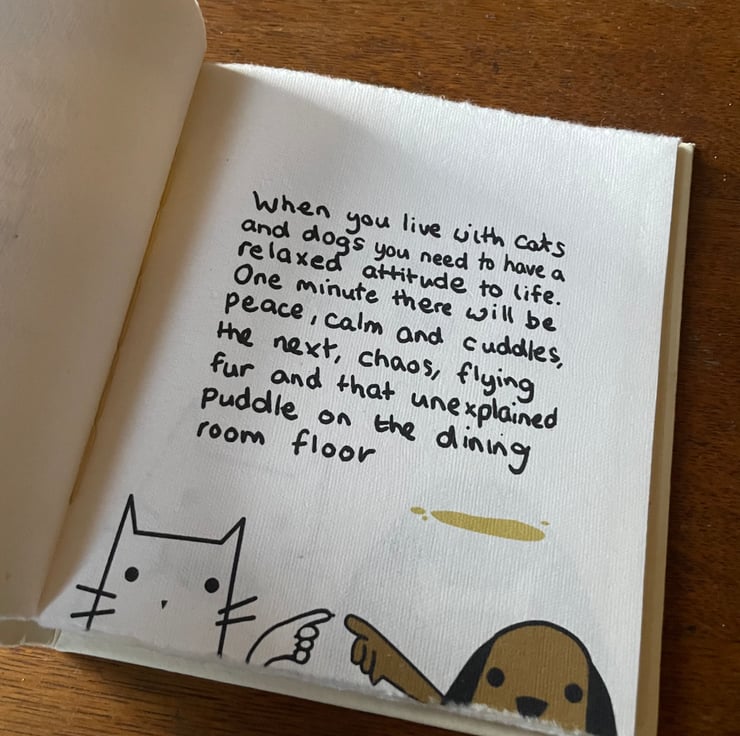 When you live with cats
and dogs you need to have a
relaxed attitude to life.
One minute there will be
peace, calm and cuddles,
the next, chaos, flying
fur and that unexplained
puddle on the dining
room floor